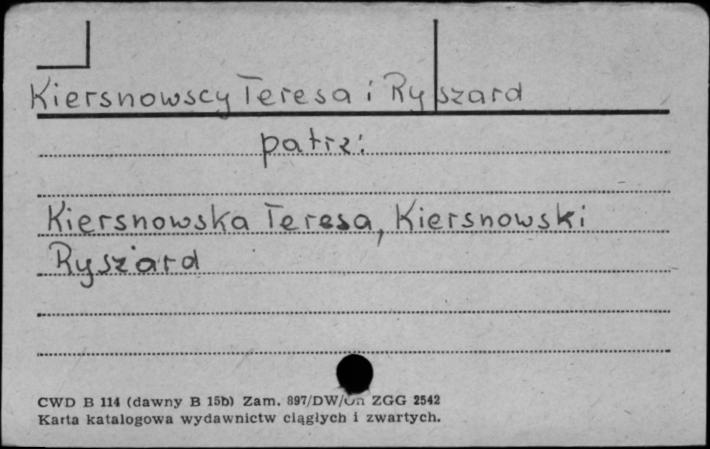 Kiersnowscy Teresa i Ryszard
patrz:
Kiersnowska Teresa, Kiersnowski
Ryszard
CWD B 114 (dawny B 15b) Zam. 897/DW/On ZGG 2542
Karta katalogowa wydawnictw ciągłych i zwartych.